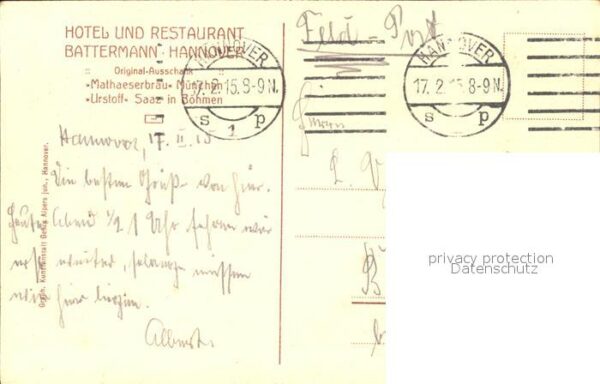 HOTEL UND RESTAURANT
BATTERMANN · HANNOVER
Original-Ausschank
Mathaeserbräu · München
Urstoff · Saaz in Böhmen
HANNOVER
17.2.15.8-9N.
s 1 p
Feld-Post
HANNOVER
17.2.15.8-9N.
s p
Hannover, 17. II. 15
Die besten Grüße von hier.
Heute Abend 1/2 1 Uhr fahren wir
erst weiter, solange müssen
wir hier liegen.
Albert.
Graph. Kunstanstalt Alpers jun., Hannover.
privacy protection
Datenschutz